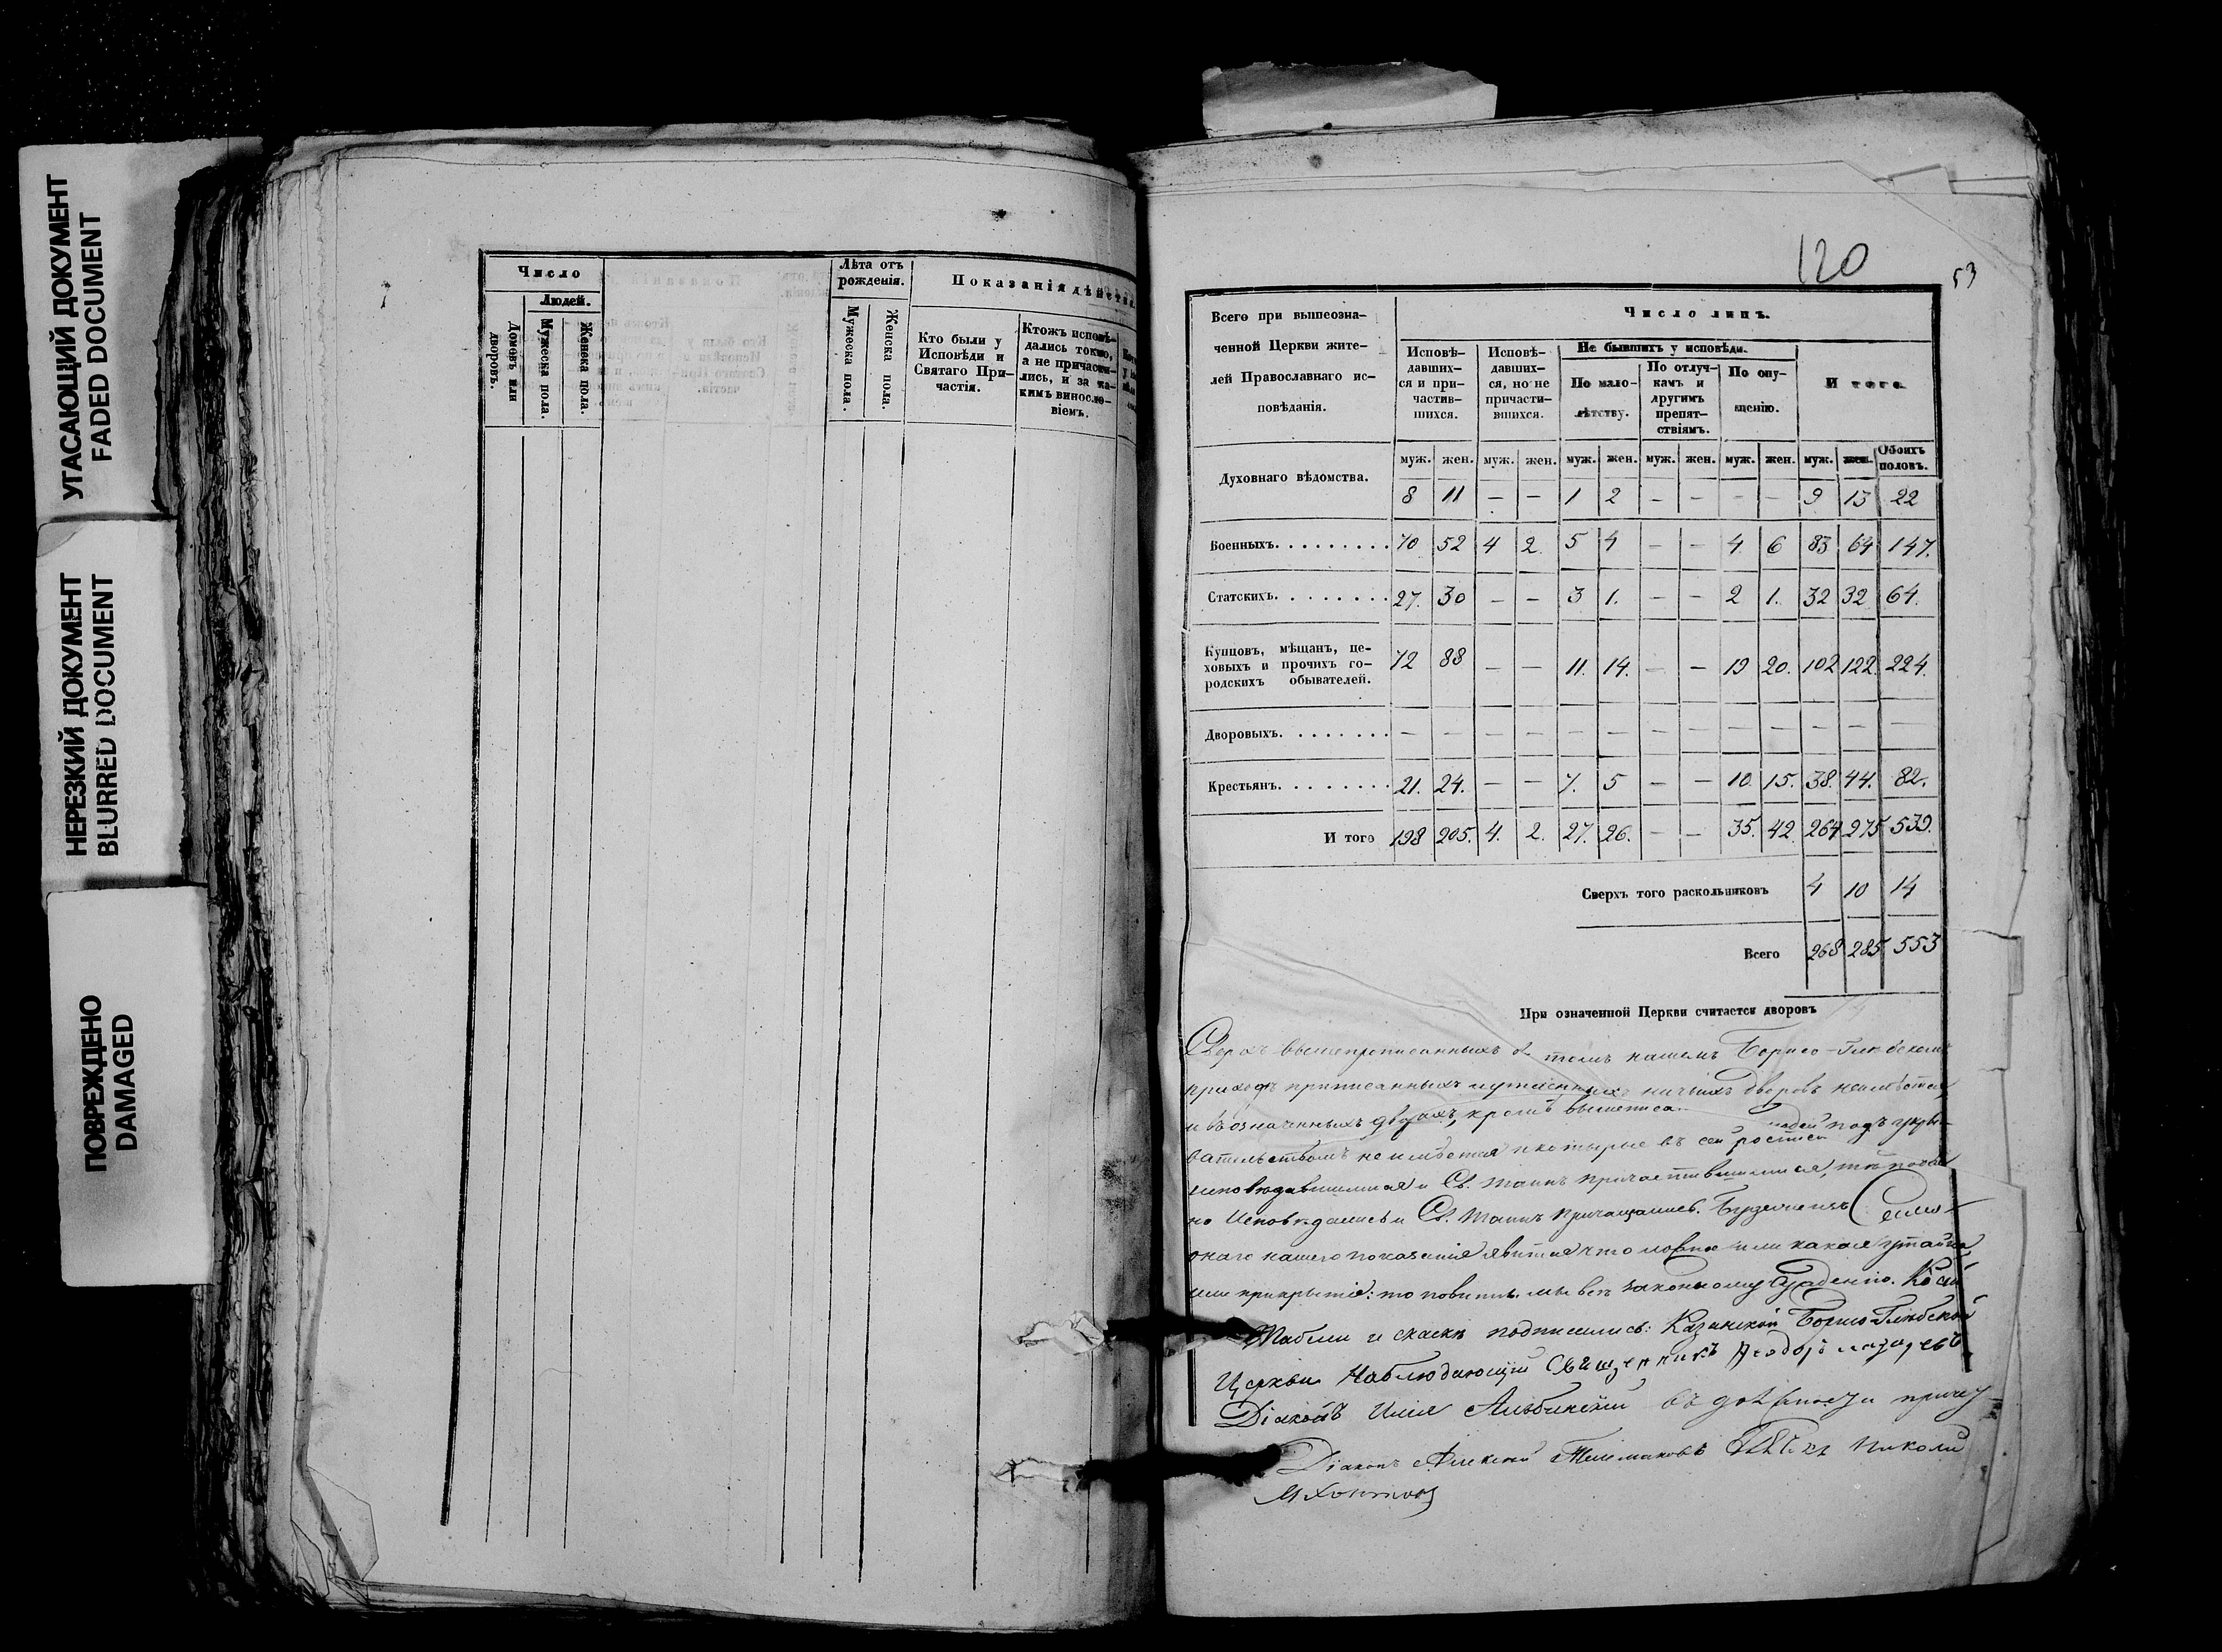 УГАСАЮЩИЙ ДОКУМЕНТ
FADED DOCUMENT
НЕРЕЗКИЙ ДОКУМЕНТ
BLURRED DOCUMENT
ПОВРЕЖДЕНО
DAMAGED
Число
Людей.
Домовъ или дворовъ.
Мужеска пола.
Женска пола.
Лѣта отъ рожденія.
Мужеска пола.
Женска пола.
Показанія дѣйства
Кто были у
Исповѣди и
Святаго При-
частія.
Ктожъ исповѣ-
дались токмо,
а не причасти-
лись, и за ка-
кимъ винослo-
віемъ.
120
53
Всего при вышеозна-
ченной Церкви жите-
лей Православнаго ис-
повѣданія.
Число лицъ.
Исповѣ-
давших-
ся и при-
частив-
шихся.
Исповѣ-
давших-
ся, но не
причасти-
вшихся.
Не бывшихъ у исповѣди.
По мало-
лѣтству.
По отлуч-
камъ и
другимъ
препят-
ствіямъ.
По опу-
щенію.
И того
муж. жен. муж. жен. муж. жен. муж. жен. муж. жен. муж. жен. Обоихъ половъ.
Духовнаго вѣдомства. 8 11 – – 1 2 – – – – 9 13 22
Военныхъ. 70 52 4 2. 5 4 – – 4 6 83 64 147.
Статскихъ. 27. 30 – – 3 1. – – 2 1. 32 32 64.
Купцовъ, мѣщанъ, це-
ховыхъ и прочихъ го-
родскихъ обывателей. 72 88 – – 11. 14. – – 19 20. 102 122. 224.
Дворовыхъ. – – – – – – – – – – – – –
Крестьянъ. 21. 24. – – 7. 5 – – 10. 15. 38. 44. 82.
И того 198 205. 4. 2. 27. 26. – – 35. 42 264 275 539.
Сверхъ того раскольниковъ 4 10 14
Всего 268 285 553
При означенной Церкви считается дворовъ
Сверхъ вышепрописанныхъ въ томъ нашемъ Борисо-Глѣбскомъ
приходѣ приписанныхъ и утаенныхъ ничьихъ дворовъ неимѣется,
и въ означенныхъ дворахъ, кромѣ вышеписа людей подъ укры-
вательствомъ не имѣется и которые въ сей росписи
исповѣдавшимися и Св. Таинъ причастившимися, тѣ
но Исповѣдались и Св. Таинъ Причащались. Буде
онаго нашего показанія явится что ложно или какая утайка
или прикрытіе: то повинны мы законному сужденію. Къ сей
Табели и сказкѣ подписались: Казанской Борисо-Глѣбской
Церкви Наблюдающій Священникъ
Діаконъ Илія Альбинскій въ
Діаконъ Алексій